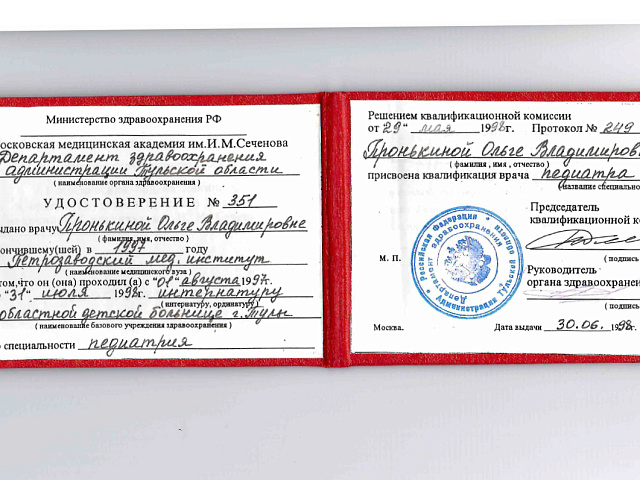 Министерство здравоохранения РФ
осковская медицинская академия им.И.М.Сеченова
Департамент здравоохранения
администрации Тульской области
( наименование органа здравоохранения )
УДОСТОВЕРЕНИЕ № 351
ыдано врачу Пронькиной Ольге Владимировне
( фамилия, имя, отчество )
ончившему(шей) в 1997 году
Петрозаводский мед. институт
( наименование медицинского вуза )
том,что он (она) проходил (а) с "01" августа 1997г.
"31" июля 1998г. интернатуру
(интернатуру, ординатуру)
областной детской больнице г.Тулы
( наименование базового учреждения здравоохранения )
о специальности педиатрия
Решением квалификационной комиссии
от "29" мая 1998г. Протокол № 249
Пронькиной Ольге Владимиров
( фамилия , имя , отчество )
присвоена квалификация врача педиатра
(название специально
Председатель
квалификационной ко
( подпись
М. П.
Руководитель
органа здравоохранени
( подпись
Москва. Дата выдачи 30.06. 1998.
Российская Федерация
Администрация Тульской области
Департамент здравоохранения